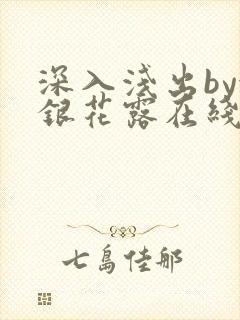 深入浅出by
銀花露在綫
七島佳那